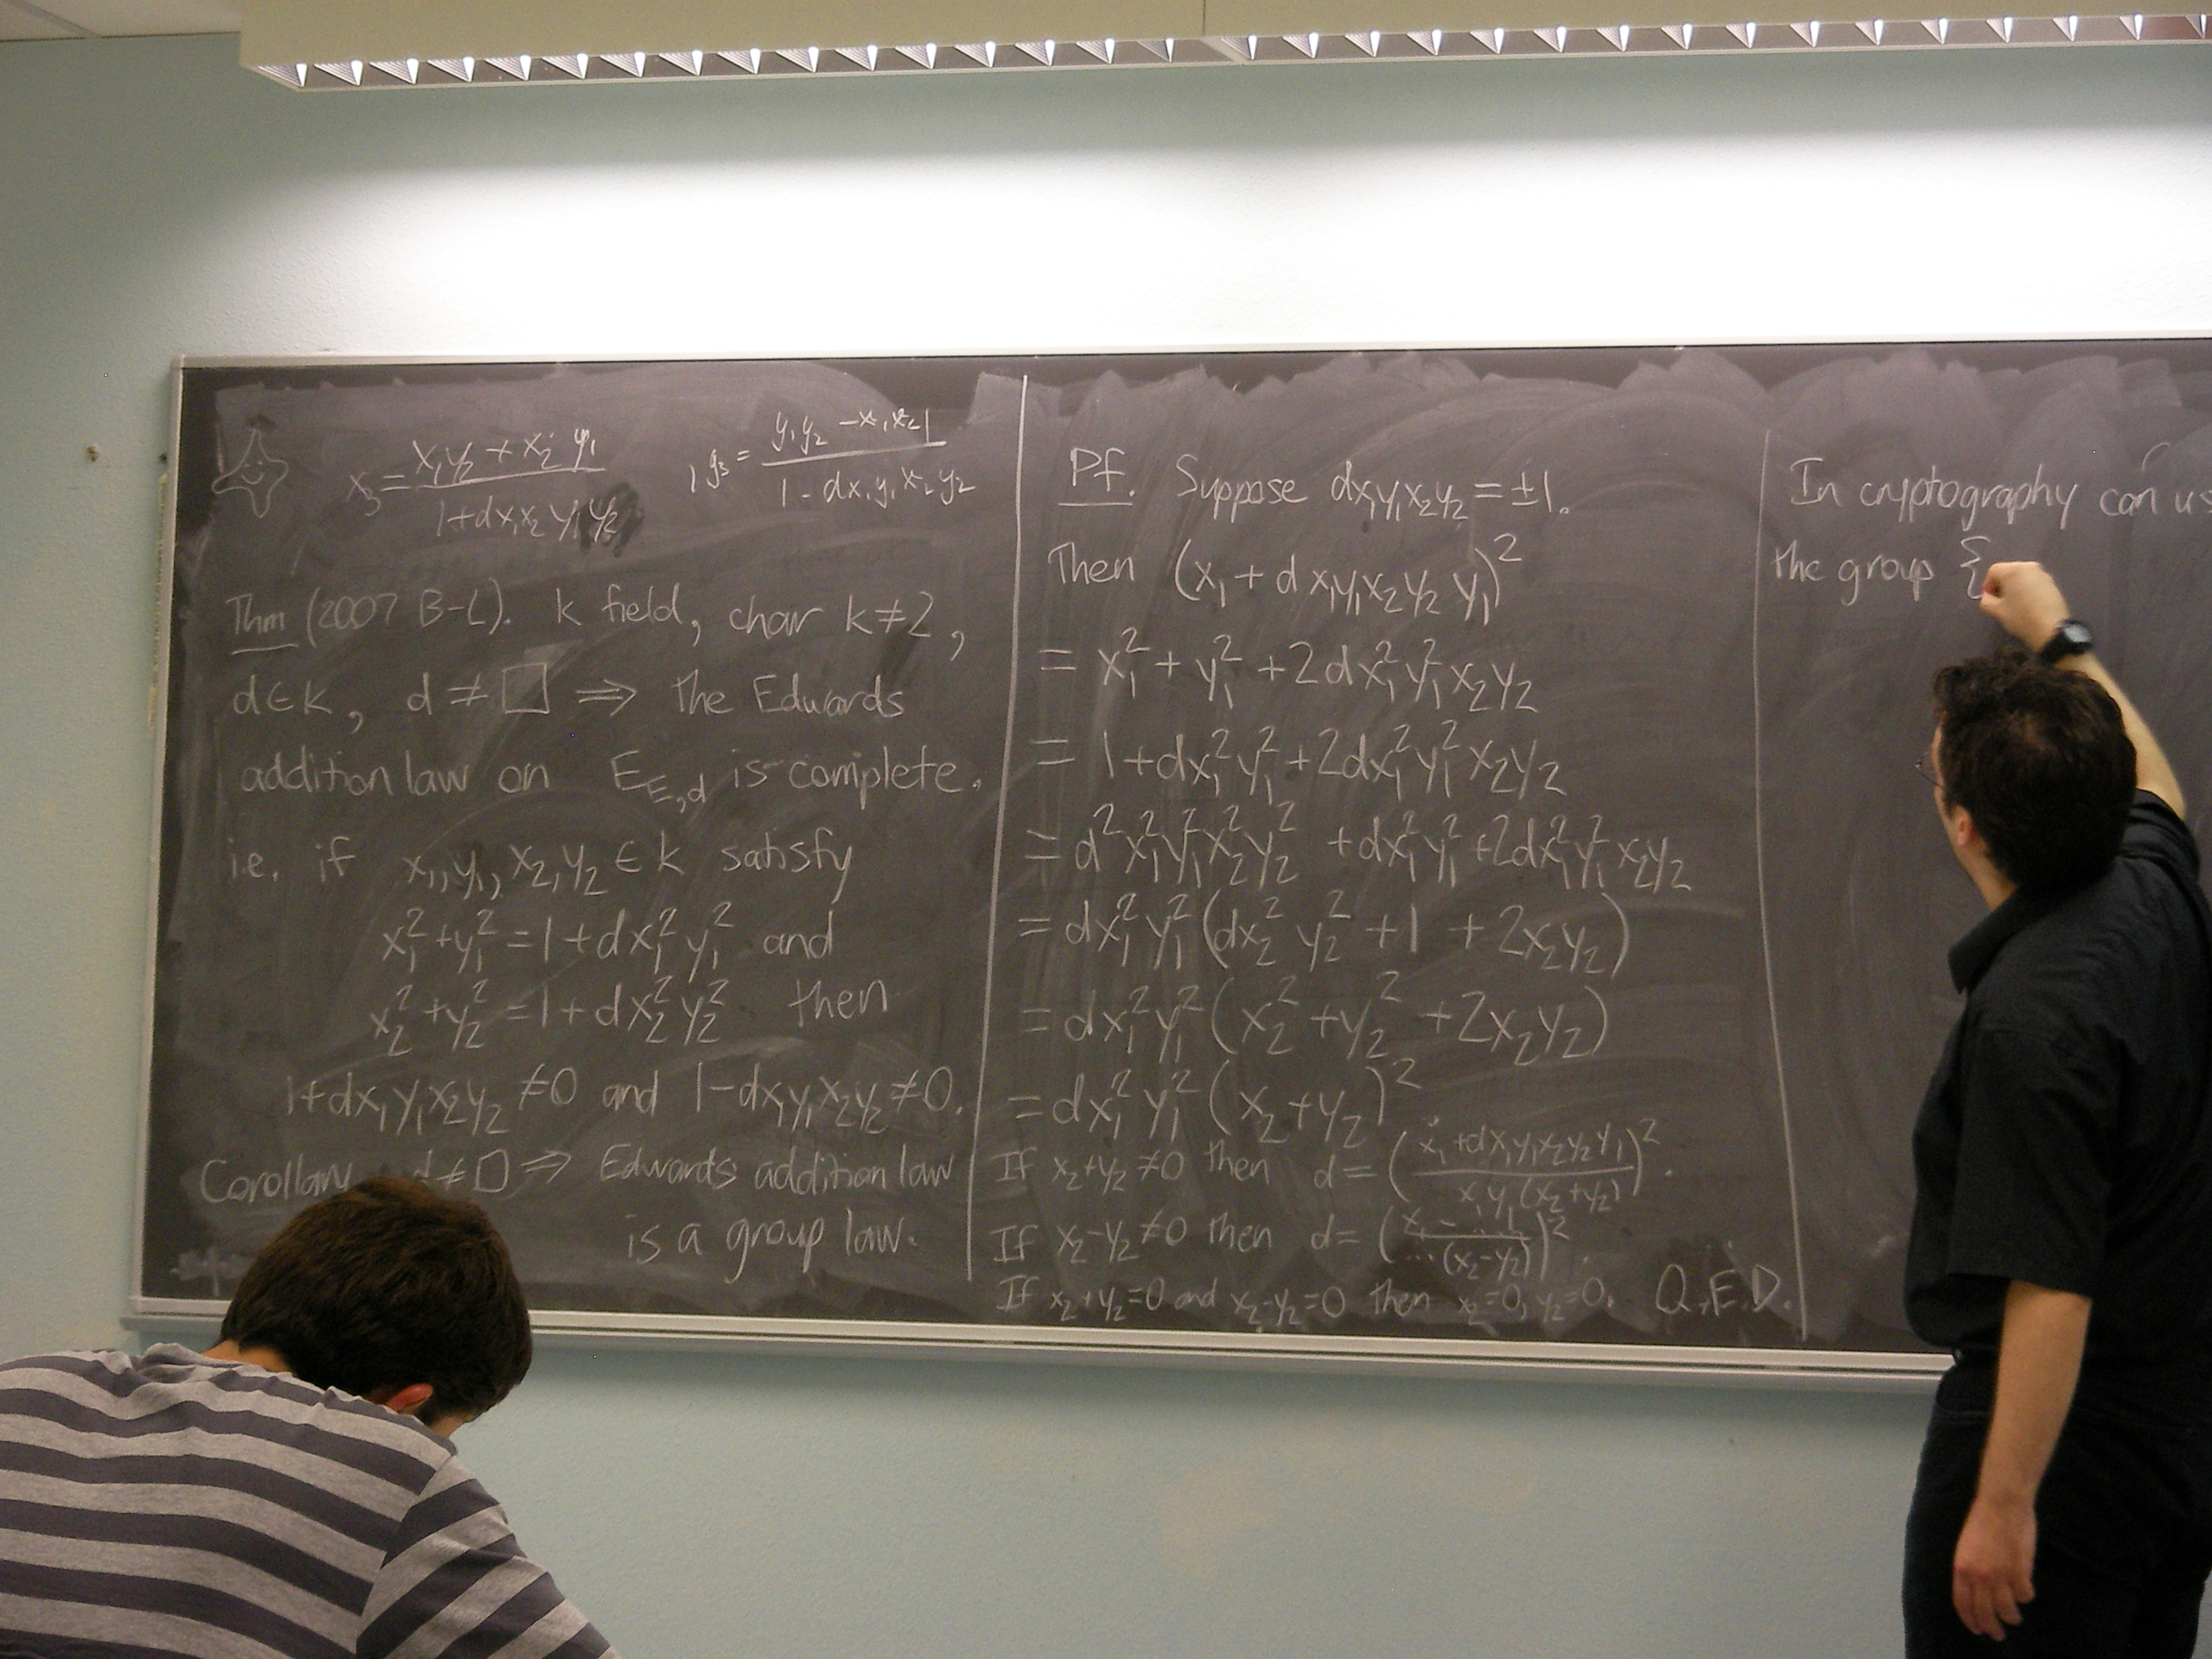 x₃ = (x₁y₂ + x₂y₁)/(1+dx₁x₂y₁y₂) , y₃ = (y₁y₂ − x₁x₂)/(1 − dx₁y₁x₂y₂)
Thm (2007 B-L). k field, char k≠2,
d∈k, d ≠ □ ⇒ the Edwards
addition law on E_{E,d} is complete.
i.e. if x₁,y₁,x₂,y₂ ∈ k satisfy
x₁²+y₁²=1+dx₁²y₁² and
x₂²+y₂²=1+dx₂²y₂² then
1+dx₁y₁x₂y₂ ≠0 and 1−dx₁y₁x₂y₂≠0.
d≠□ ⇒ Edwards addition law
is a group law.
Pf. Suppose dx₁y₁x₂y₂ = ±1.
Then (x₁ + dx₁y₁x₂y₂ y₁)²
= x₁² + y₁² + 2dx₁²y₁²x₂y₂
= 1+dx₁²y₁²+2dx₁²y₁²x₂y₂
= d²x₁²y₁²x₂²y₂² +dx₁²y₁²+2dx₁²y₁²x₂y₂
= dx₁²y₁²(dx₂²y₂² +1 + 2x₂y₂)
= dx₁²y₁²(x₂² +y₂² +2x₂y₂)
= dx₁²y₁²(x₂+y₂)²
If x₂+y₂≠0 then d= ((x₁+dx₁y₁x₂y₂y₁)/(x₁y₁(x₂+y₂)))².
If x₂−y₂≠0 then d= ((x₁ − ...)/(...(x₂−y₂)))².
If x₂+y₂=0 and x₂−y₂=0 then x₂=0, y₂=0. Q.E.D.
In cryptography can
the group {